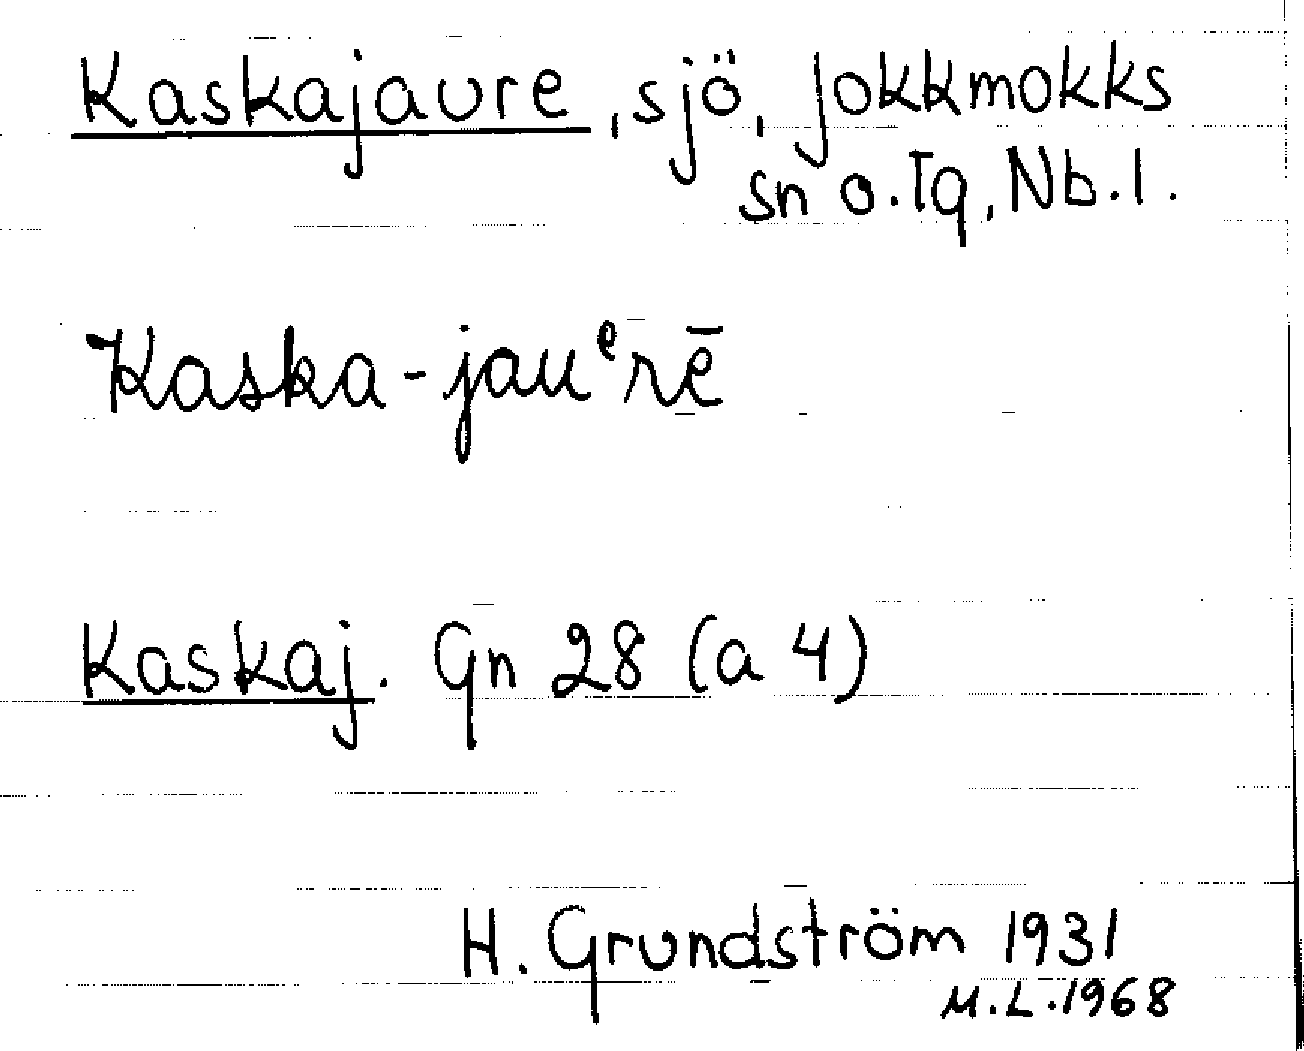 Kaskajaure, sjö, Jokkmokks
sn o. Tg, Nb. l.
Kaska-jauᵉrē
Kaskaj. Gn 28 (a 4)
H. Grundström 1931
M.L. 1968